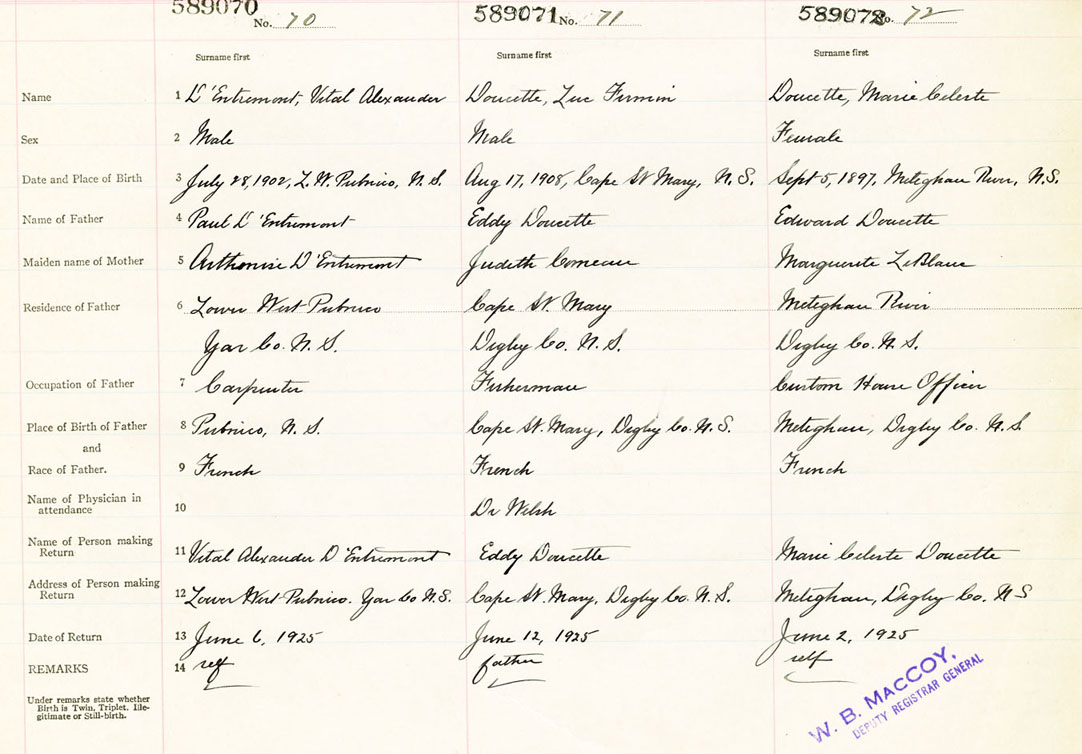 589070 No. 70 589071 No. 71 589072 No. 72
Surname first Surname first Surname first
Name 1 D'Entremont, Vital Alexander Doucette, Luc Firmin Doucette, Marie Celeste
Sex 2 Male Male Female
Date and Place of Birth 3 July 28, 1902, L. W. Pubnico, N. S. Aug 17, 1908, Cape St Mary, N. S. Sept 5, 1897, Meteghan River, N.S.
Name of Father 4 Paul D'Entremont Eddy Doucette Edward Doucette
Maiden name of Mother 5 D'Entremont Judith Comeau Marguerite LeBlanc
Residence of Father 6 Lower West Pubnico Cape St. Mary Meteghan River
Yar Co. N. S. Digby Co. N. S. Digby Co. N. S.
Occupation of Father 7 Carpenter Fisherman Custom House Officer
Place of Birth of Father 8 Pubnico, N. S. Cape St. Mary, Digby Co. N. S. Meteghan, Digby Co. N. S
and
Race of Father. 9 French French French
Name of Physician in
attendance 10 Dr Welsh
Name of Person making
Return 11 Vital Alexander D'Entremont Eddy Doucette Marie Celeste Doucette
Address of Person making
Return 12 Lower West Pubnico. Yar Co N.S. Cape St. Mary, Digby Co. N. S. Meteghan, Digby Co. N S
Date of Return 13 June 6, 1925 June 12, 1925 June 2, 1925
REMARKS 14 self father self
Under remarks state whether
Birth is Twin, Triplet. Ille-
gitimate or Still-birth.
W. B. MACCOY,
DEPUTY REGISTRAR GENERAL